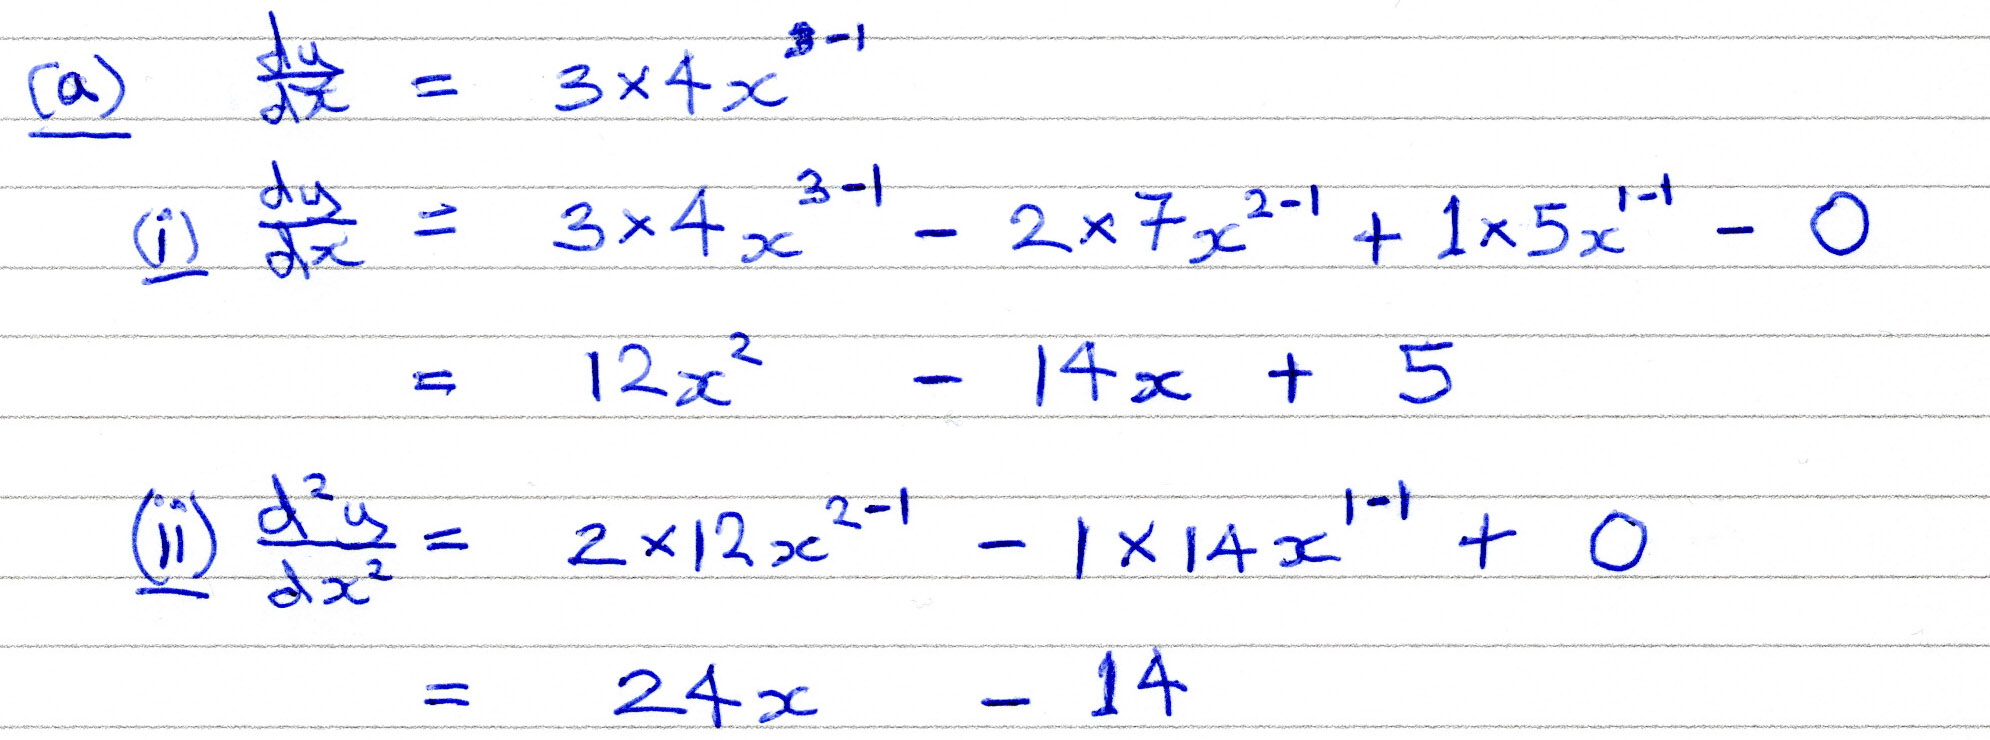 (a) dy/dx = 3×4x^(3-1)
(i) dy/dx = 3×4x^(3-1) - 2×7x^(2-1) + 1×5x^(1-1) - 0
= 12x² - 14x + 5
(ii) d²y/dx² = 2×12x^(2-1) - 1×14x^(1-1) + 0
= 24x - 14